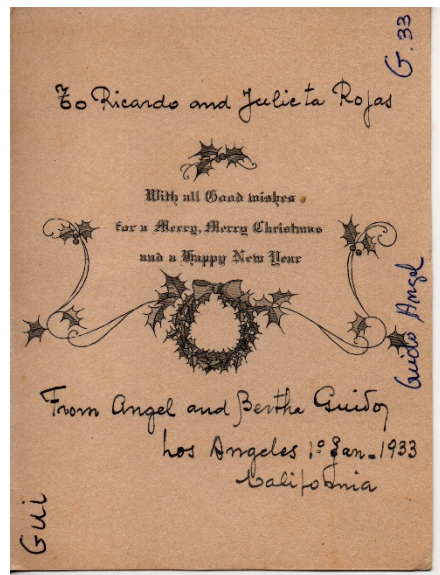 G. 33
To Ricardo and Julieta Rojas
With all Good wishes
for a Merry, Merry Christmas
and a Happy New Year
Guido Angel
From Angel and Bertha Guido,
Los Angeles 1º Jan. 1933
California
Gui